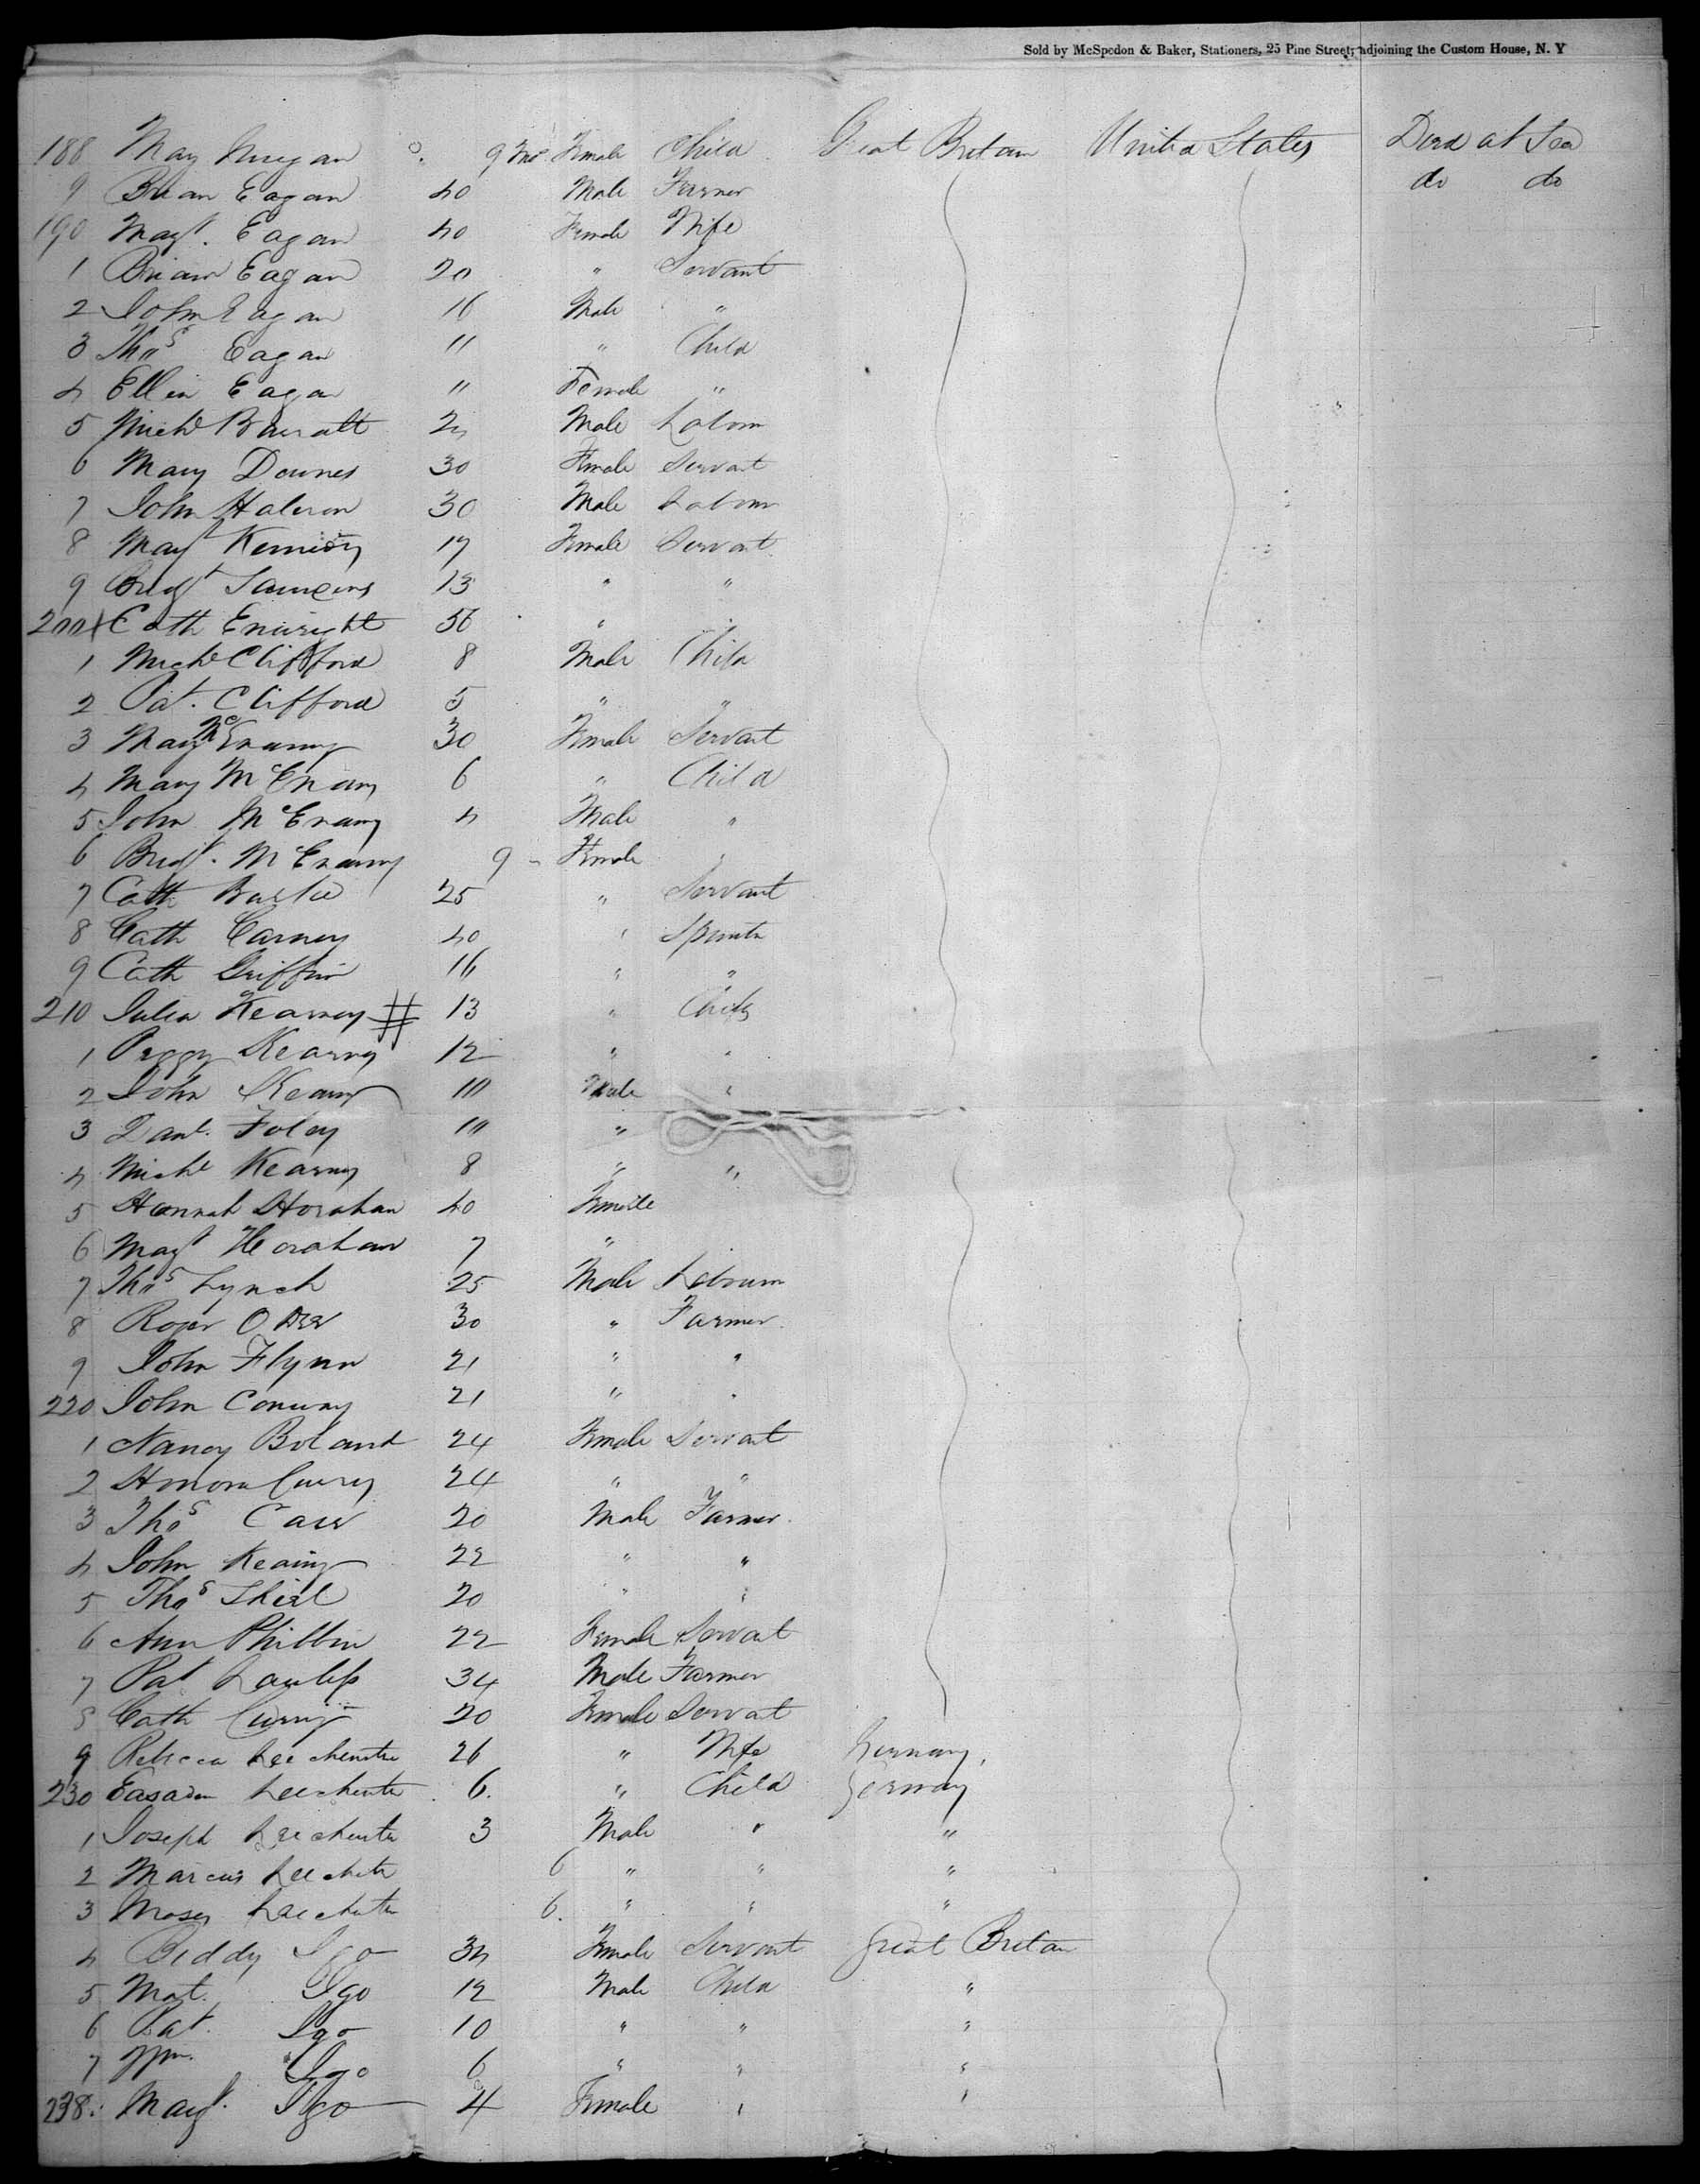 Sold by McSpedon & Baker, Stationers, 25 Pine Street, adjoining the Custom House, N. Y
188 May 9 Mos Female Child Great Britain United States Died at Sea
9 Brian Eagan 40 Male Farmer do do
190 Magt. Eagan 40 Female Wife
1 Brian Eagan 20 " Servant
2 John Eagan 16 Male "
3 Thos Eagan 11 " Child
4 Ellen Eagan " Female "
5 Michl Barratt 24 Male Labour
6 Mary Downes 30 Female Servant
7 John Haleron 30 Male Labour
8 Magt Kennedy 17 Female Servant
9 Bridgt 13 " "
200 Cath Enwright 56 " "
1 Michl Clifford 8 Male Child
2 Pat. Clifford 5 " "
3 Magt McEnamy 30 Female Servant
4 Mary McEnamy 6 " Child
5 John McEnamy 4 Male "
6 Bridgt. McEnamy 9 " Female "
7 Cath 25 " Servant
8 Cath Carney 40 " Spinster
9 Cath Griffin 16 " "
210 Julia Kearney # 13 " Child
1 Peggy Kearny 12 " "
2 John Kearny 10 Male "
3 Danl. Foley 10 "
4 Michl Kearny 8 " "
5 Hannah Horahan 40 Female
6 Magt Horahan 7 "
7 Thos Lynch 25 Male Labourer
8 Roger O Dea 30 " Farmer
9 John Flynn 21 " "
220 John Conway 21 " "
1 Nancy Boland 24 Female Servant
2 Honora Curry 24 " "
3 Thos Carr 20 Male Farmer
4 John Keainy 22 " "
5 Thos Shiel 20 " "
6 Ann Philbin 22 Female Servant
7 Pat Lawless 34 Male Farmer
8 Cath Curry 20 Female Servant
9 Rebecca Leechenter 26 " Wife Germany
230 Leechenter 6 " Child Germany
1 Joseph Leechenter 3 Male " "
2 Marcus Leechenter 6 " " "
3 Moses Leechenter 6 " " "
4 Biddy Igo 34 Female Servant Great Britain
5 Mat. Igo 12 Male Child "
6 Pat. Igo 10 " " "
7 Wm. Igo 6 " " "
238 Magt. Igo 4 Female " "